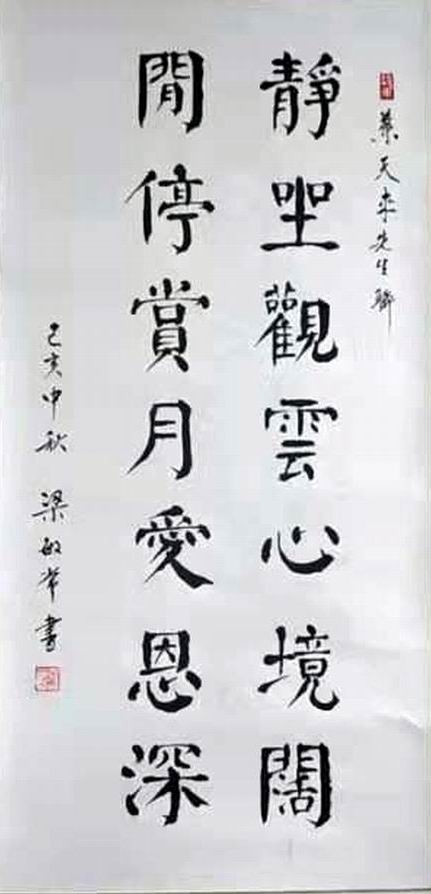 葉天來先生聯
靜坐觀雲心境闊
閒停賞月愛恩深
己亥中秋 梁敏常書